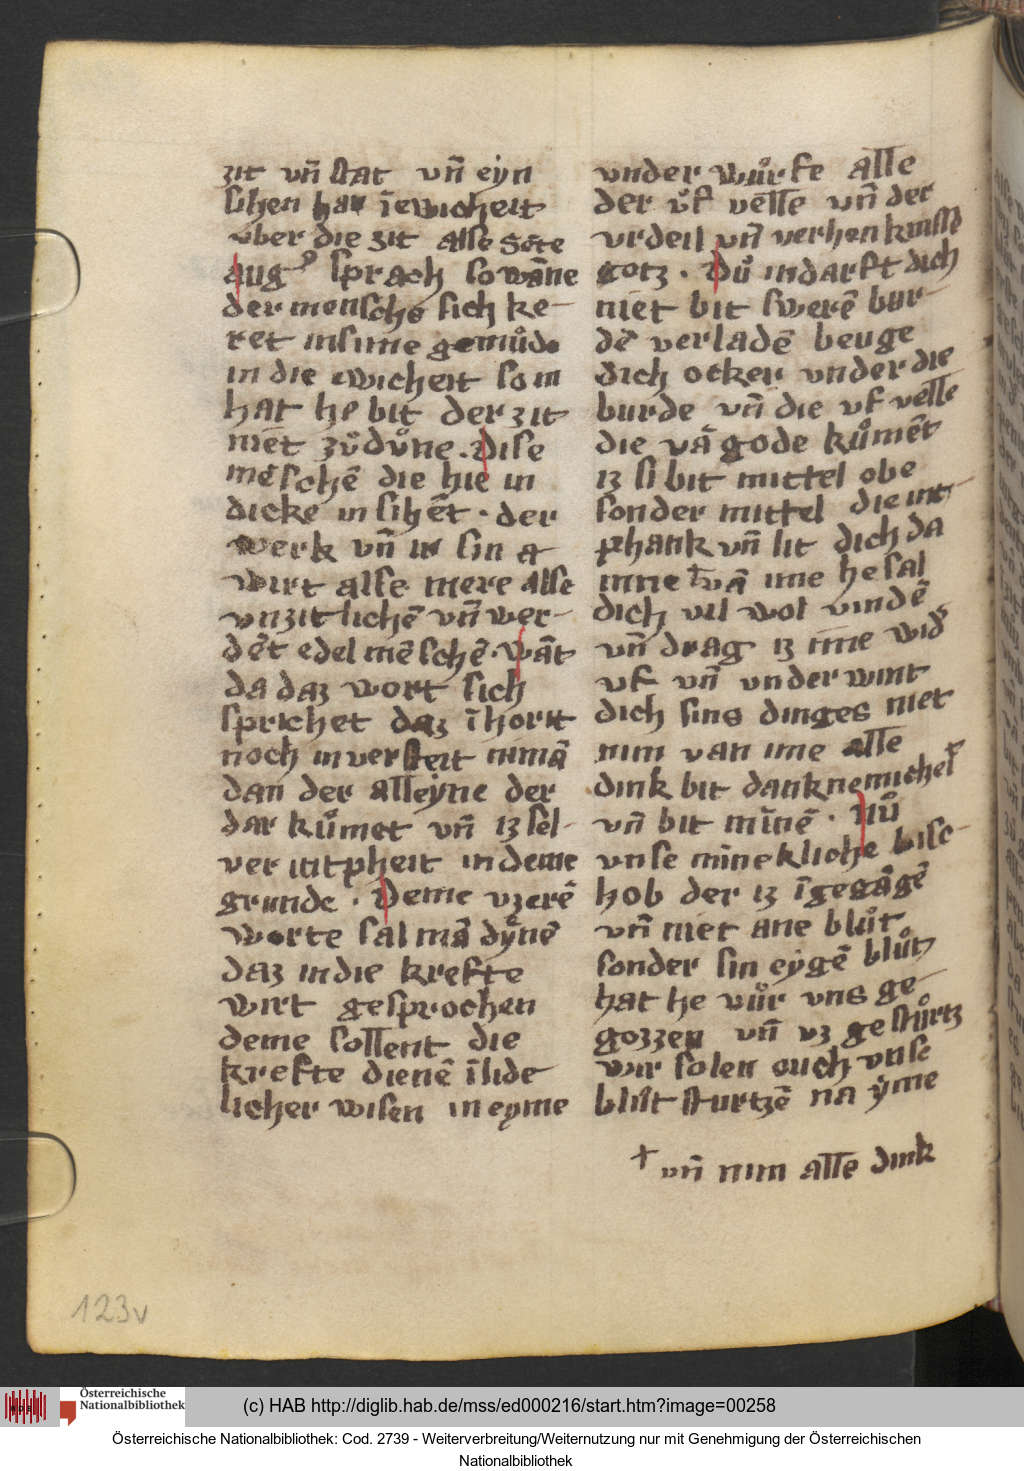 zit vn̄ stat vn̄ eyn
sihen hat īewicheit
vber die zit alse sāte
aug᾽ sprach so wāne
der mensche sich ke-
ret in sime gemuͦde
in die ewicheit so in
hat he bit der zit
niet zuͦ duͦne . Dise
mēschē die hie in
dicke in sihēt . der
werk vn̄ ir sin a
wirt alse mere alse
vnzitlichē vn̄ wer-
dēt edel mēschē . Wāt
da daz wort sich
sprichet daz īhorit
noch inversteit nimā
dan der alleyne der
dar kuͦmet vn̄ iz sel-
ver intpheit in deme
grunde . Deme vzerē
worte sal mā dynē
daz in die krefte
wirt gesprochen
deme sollent die
krefte dienē ī lide-
licher wisen in eyme
vnder wuͦrfe alle
der uͦf velle vn̄ der
vrdeil vn̄ verhenknisse
gotz . Duͦ indarft dich
niet bit swerē bur-
dē verladē beuge
dich ocker vnder die
burde vn̄ die vf velle
die vā gode kuͦmēt
iz si bit mittel obe
sonder mittel die int-
phank vn̄ lit dich da
inne + vā ime he sal
dich vil wol vindē
vn̄ drag iz ime wid᾽
vf vn̄ vnderwint
dich sins dinges niet
nim van ime alle
dink bit danknemicheit
vn̄ bit mīnē . Nuͦ
vnse minekliche bisc-
hob der iz īgegāgē
vn̄ niet ane bluͦt
sonder sin eygē bluͦt
hat he vuͦr vns ge-
gozzen vn̄ vz gestuͦrtz
wir solen ouch vnse
bluͦt sturtzē na yme
+ vn̄ nim alle dink
123v
Österreichische
Nationalbibliothek
(c) HAB http://diglib.hab.de/mss/ed000216/start.htm?image=00258
Österreichische Nationalbibliothek: Cod. 2739 - Weiterverbreitung/Weiternutzung nur mit Genehmigung der Österreichischen
Nationalbibliothek